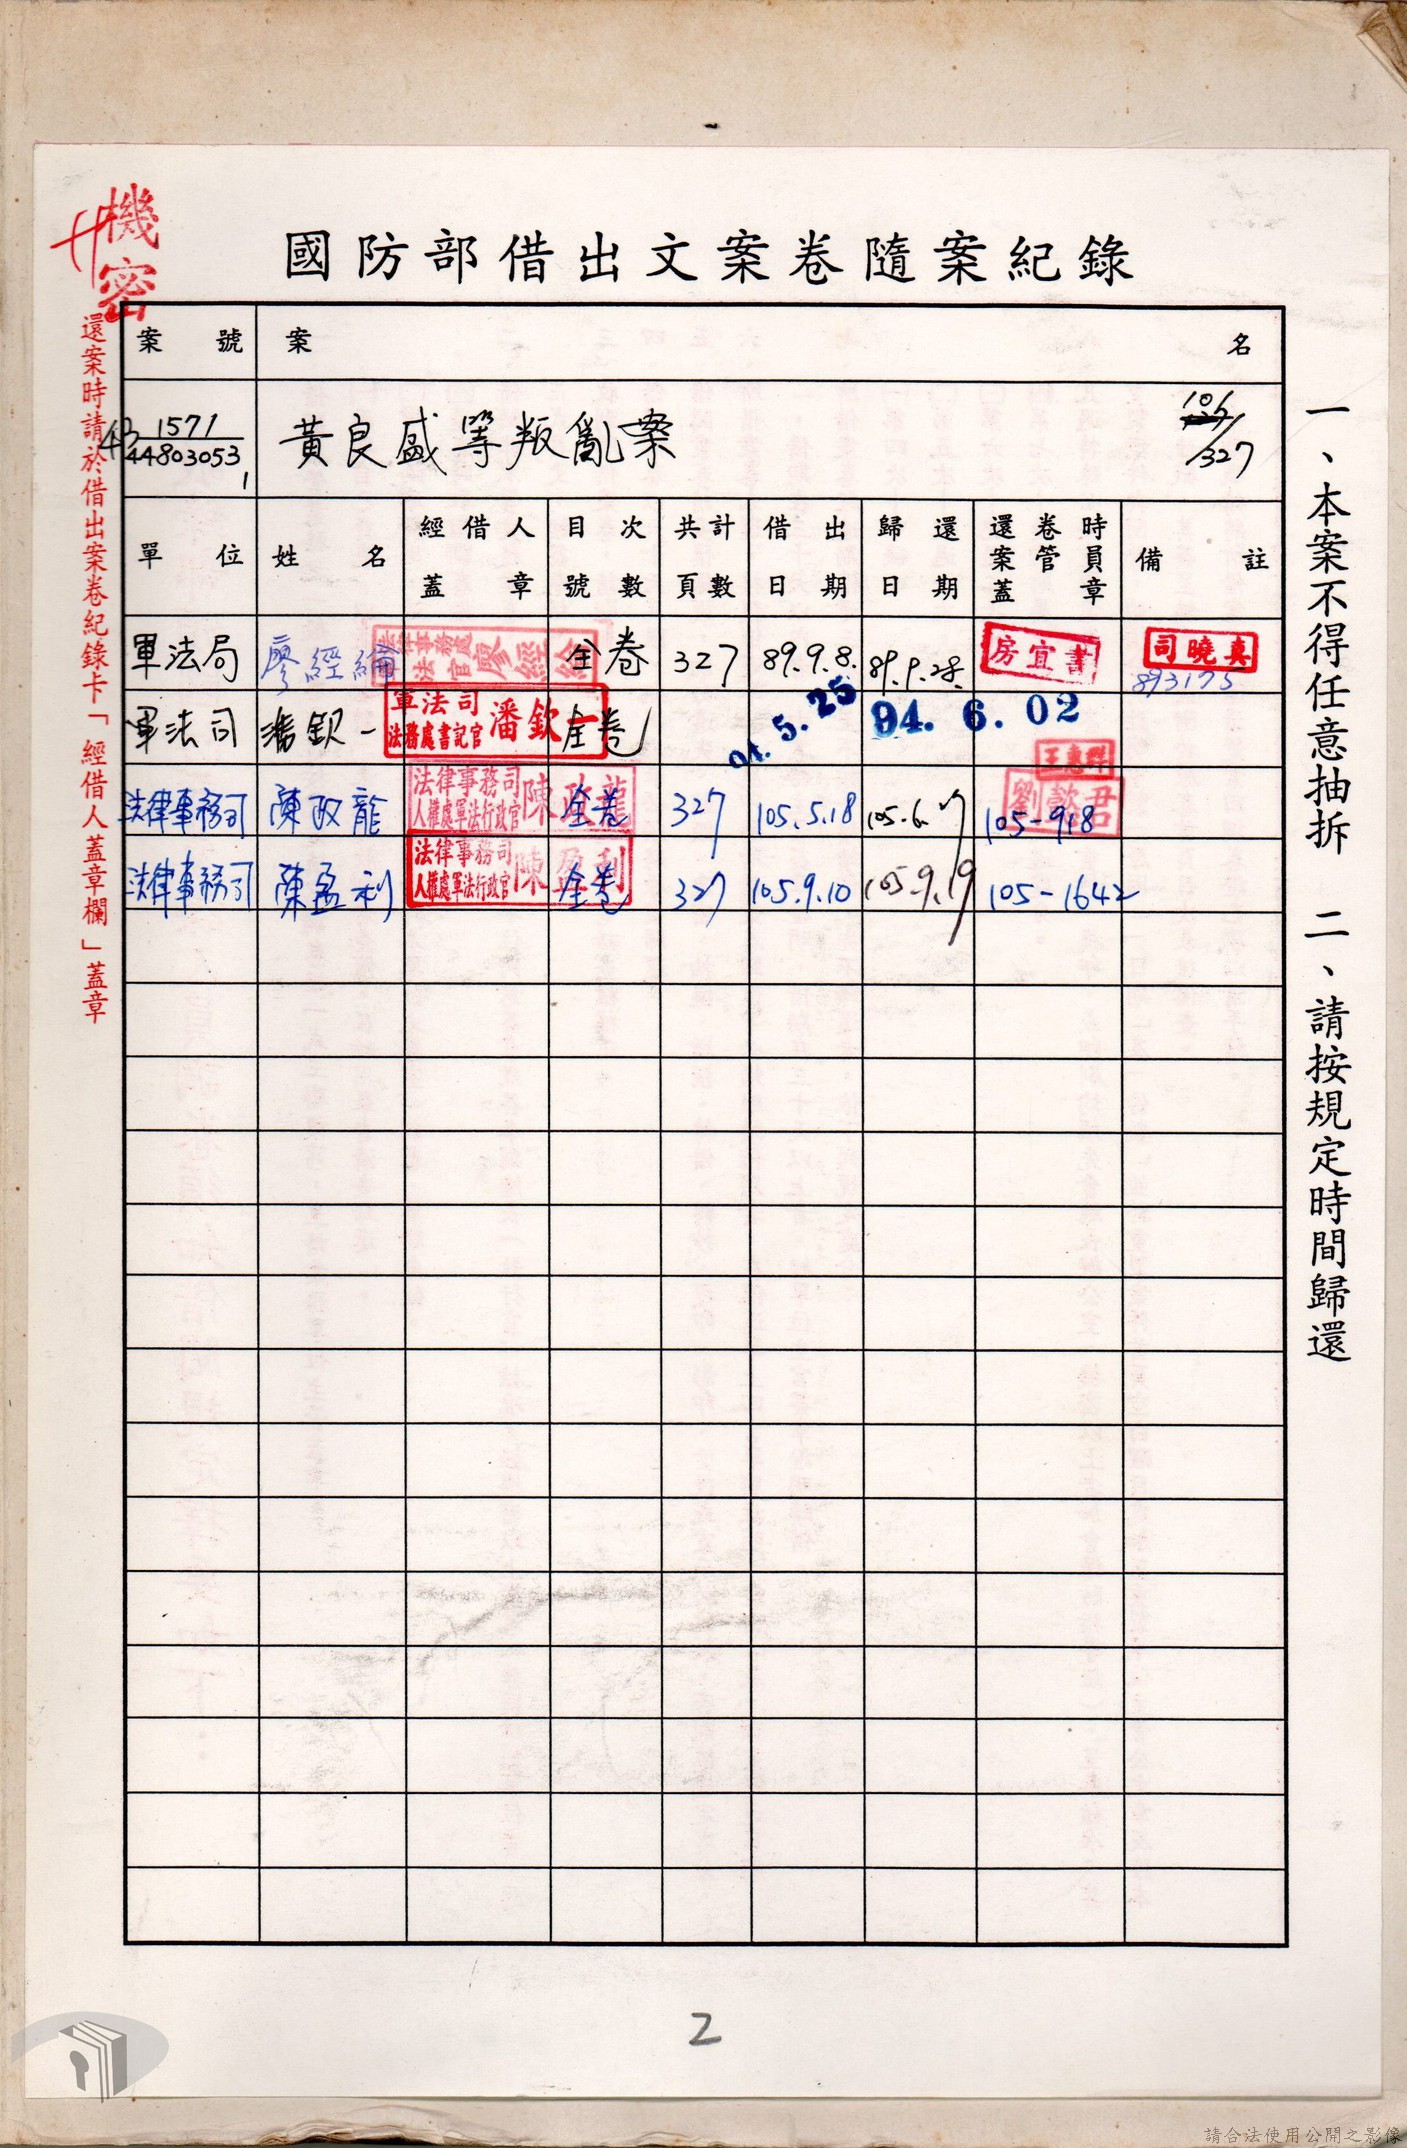 機密
國防部借出文案卷隨案紀錄
還案時請於借出案卷紀錄卡「經借人蓋章欄」蓋章
一、本案不得任意抽拆 二、請按規定時間歸還
案號 案名
1571
44803053
1
黃良盛等叛亂案
327
單位 姓名 經借人蓋章 目次號數 共計頁數 借出日期 歸還日期 還卷時案管員蓋章 備註
軍法局 廖經綸 全卷 327 89.9.8. 89.9.28. 房宜書 司曉真
893175
軍法司 潘欽一 軍法司法務處書記官潘欽一 全卷 94.5.25 94.6.02
王惠群
法律事務司 陳政龍 法律事務司人權處軍法行政官陳政龍 全卷 327 105.5.18 105.6.17 105-918
法律事務司 陳盈利 法律事務司人權處軍法行政官陳盈利 全卷 327 105.9.10 105.9.19 105-1642
2
請合法使用公開之影像